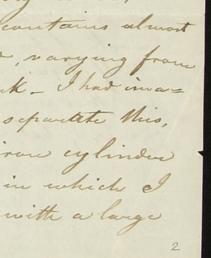 contains almost
, varying from
k - I had ima=
separate this,
iron cylinder
in which I
with a large
2